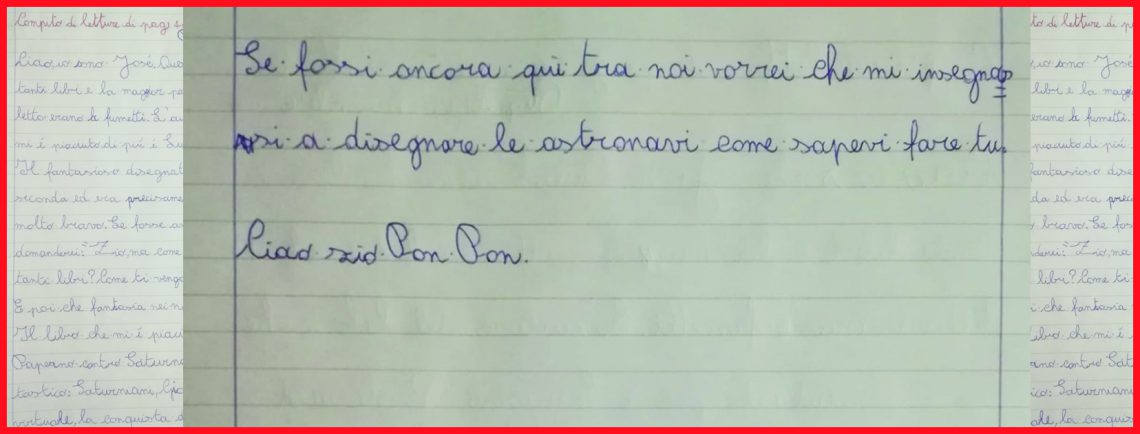 Compito di letture di pag
Ciao, io sono José. Que
tanti libri e la maggior pa
letto erano di fumetti. L'au
mi è piaciuto di più è Lu
Il fantasioso disegnat
seconda ed era precisame
molto bravo. Se fosse an
domanderei: "Zio, ma come
tanti libri? Come ti veng
E poi che fantasia nei n
Il libro che mi è piaciu
Paperino contro Saturno
tastico: Saturniani, Gio
virtuale, la conquista d
Se fossi ancora qui tra noi vorrei che mi insegnas
si a disegnare le astronavi come sapevi fare tu.
Ciao zio Pon Pon.
to di letture di p
, io sono José
libri e la magg
erano di fumetti.
piaciuto di più
fantasioso dise
da ed era preci
bravo. Se fos
derei: "Zio, ma
libri? Come ti
i che fantasia
libro che mi è
ino contro Sat
ico: Saturniani
ale, la conquis